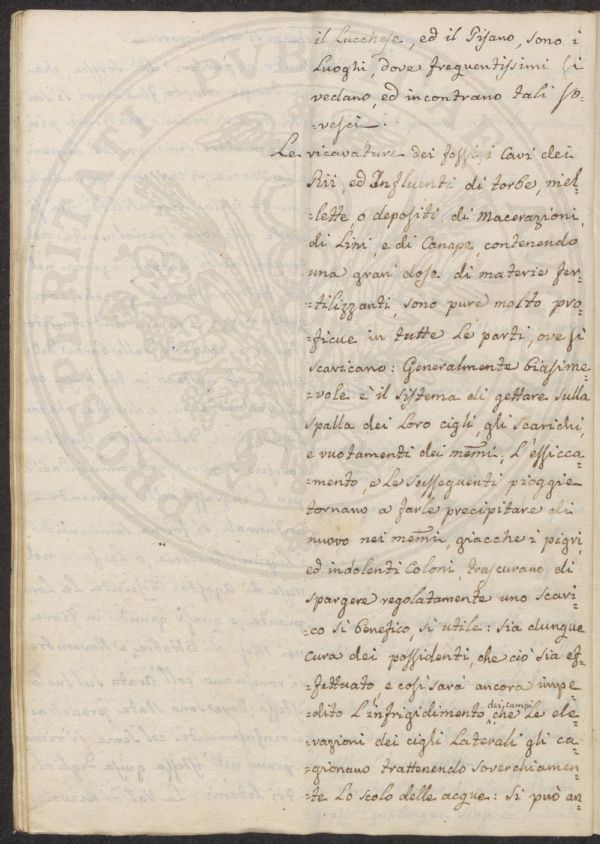 il Lucchese, ed il Pisano, sono i
Luoghi, dove frequentissimi si
vedano, ed incontrano tali so-
=vesci.
Le ricavature dei fossi, i Cavi dei
Rii, ed Influenti di torbe, mel=
=lette, o depositi di Macerazioni,
di Lini, e di Canape, contenendo
una gran dose di materie fer=
=tilizzanti, sono pure molto pro=
=ficue in tutte le parti, ove si
scavicano: Generalmente biasime=
=vole è il sistema di gettare sulla
spalla dei loro cigli, gli scarichi,
e vuotamenti dei medmi; L'essicca=
=mento, e le susseguenti pioggie
tornano a farle precipitare di
nuovo nei medmi, giacche i pigri,
ed indolenti Coloni, trascurano di
spargere regolatamente uno scari=
=co si benefico, si utile: sia dunque
cura dei possidenti, che ciò sia ef=
=fettuato, e così sarà ancora impe=
=dito l'infrigidimento dei campi che le ele=
=vazioni dei cigli laterali gli ca=
=gionano trattenendo soverchiamen=
=te lo scolo delle acque: Si può an=
PROSPERITATI PUBLICAE